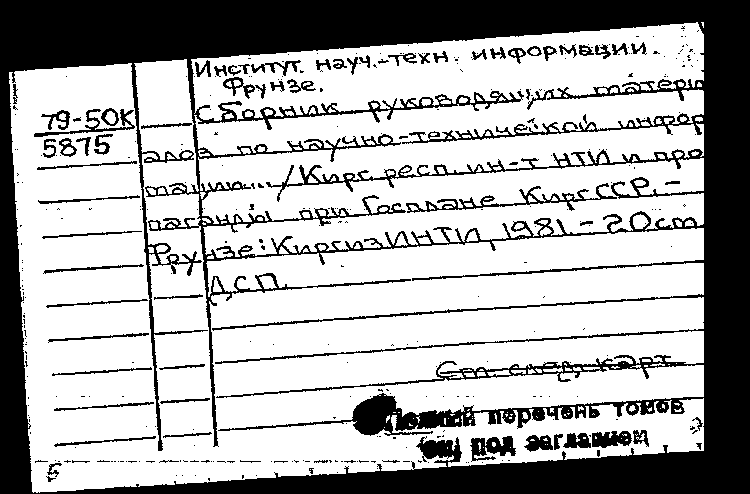 Институт. науч.-техн. информации.
Фрунзе.
79-50К
5875
Сборник руководящих матери
алов по научно-технической инфор
мации... /Кирг. респ. ин-т НТИ и про
паганды при Госплане Кирг ССР. –
Фрунзе: КиргизИНТИ, 1981 – 20 cm
ДСП.
См. след. карт.
Полный перечень томов
см. под заглавием
5